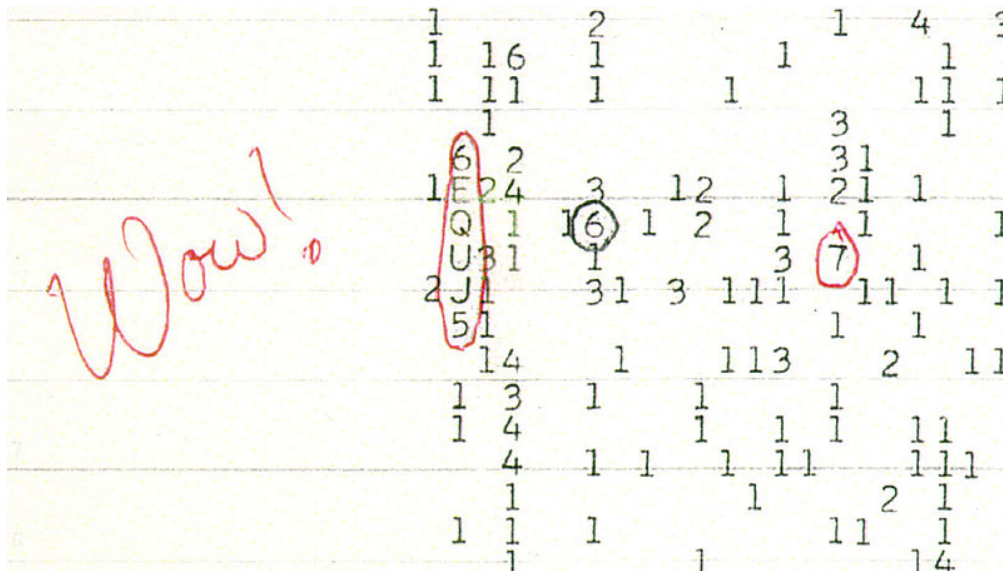 Wow!
1 2 1 4 3
1 1 6 1 1 1
1 1 1 1 1 1 1 1
1 3 1
6 2 3 1
1 E 2 4 3 1 2 1 2 1 1
Q 1 1 6 1 2 1 1 1
U 3 1 1 3 7 1
2 J 1 3 1 3 1 1 1 1 1 1 1
5 1 1 1
1 4 1 1 1 3 2 1 1
1 3 1 1 1
1 4 1 1 1 1 1
4 1 1 1 1 1 1 1 1
1 1 2 1
1 1 1 1 1 1
1 1 1 4